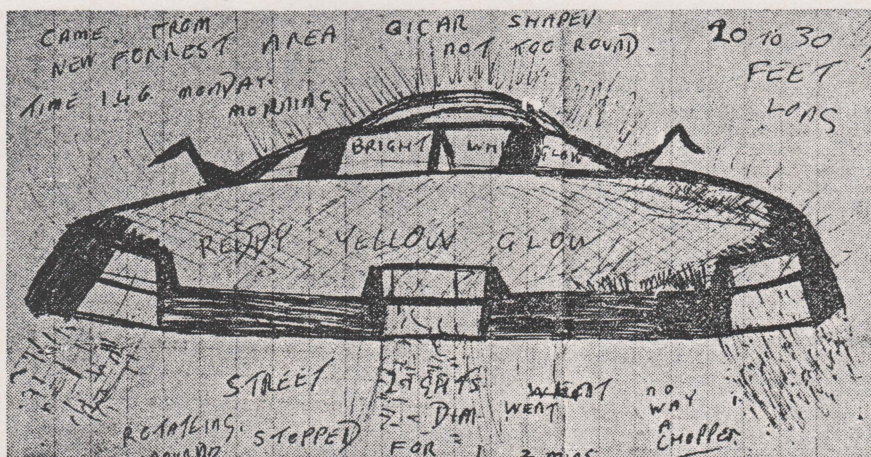 CAME FROM
NEW FORREST AREA
TIME 1.46 MONDAY.
MORNING
QICAR SHAPED
NOT TOO ROUND.
20 TO 30
FEET
LONG
BRIGHT WHI GLOW
REDDY YELLOW GLOW
STREET LIGHTS WENT
WENT DIM
ROTATEING. STOPPED FOR
NO
WAY
A
CHOPPER